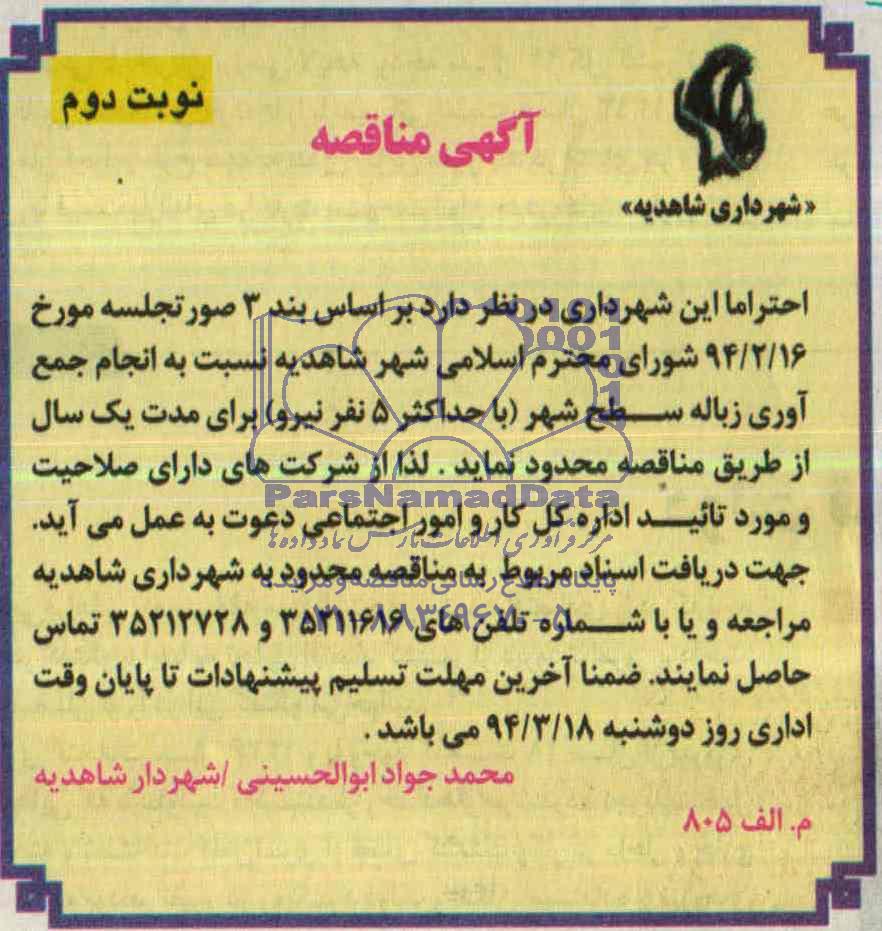 نوبت دوم
آگهی مناقصه
«شهرداری شاهدیه»
احتراما این شهرداری در نظر دارد بر اساس بند ۳ صورتجلسه مورخ
۹۴/۲/۱۶ شورای محترم اسلامی شهر شاهدیه نسبت به انجام جمع
آوری زباله سطح شهر (با حداکثر ۵ نفر نیرو) برای مدت یک سال
از طریق مناقصه محدود نماید . لذا از شرکت های دارای صلاحیت
ParsNamadData
و مورد تائید اداره کل کار و امور اجتماعی دعوت به عمل می آید.
مرکز فرآوری اطلاعات پارس نماد داده ها
جهت دریافت اسناد مربوط به مناقصه محدود به شهرداری شاهدیه
پایگاه اطلاع رسانی مناقصه و مزایده
مراجعه و یا با شماره تلفن های ۳۵۲۱۱۶۱۶ و ۳۵۲۱۲۷۲۸ تماس
۰۲۱-۸۸۳۴۹۶۷۰-۵
حاصل نمایند. ضمنا آخرین مهلت تسلیم پیشنهادات تا پایان وقت
اداری روز دوشنبه ۹۴/۳/۱۸ می باشد .
محمد جواد ابوالحسینی /شهردار شاهدیه
م. الف ۸۰۵